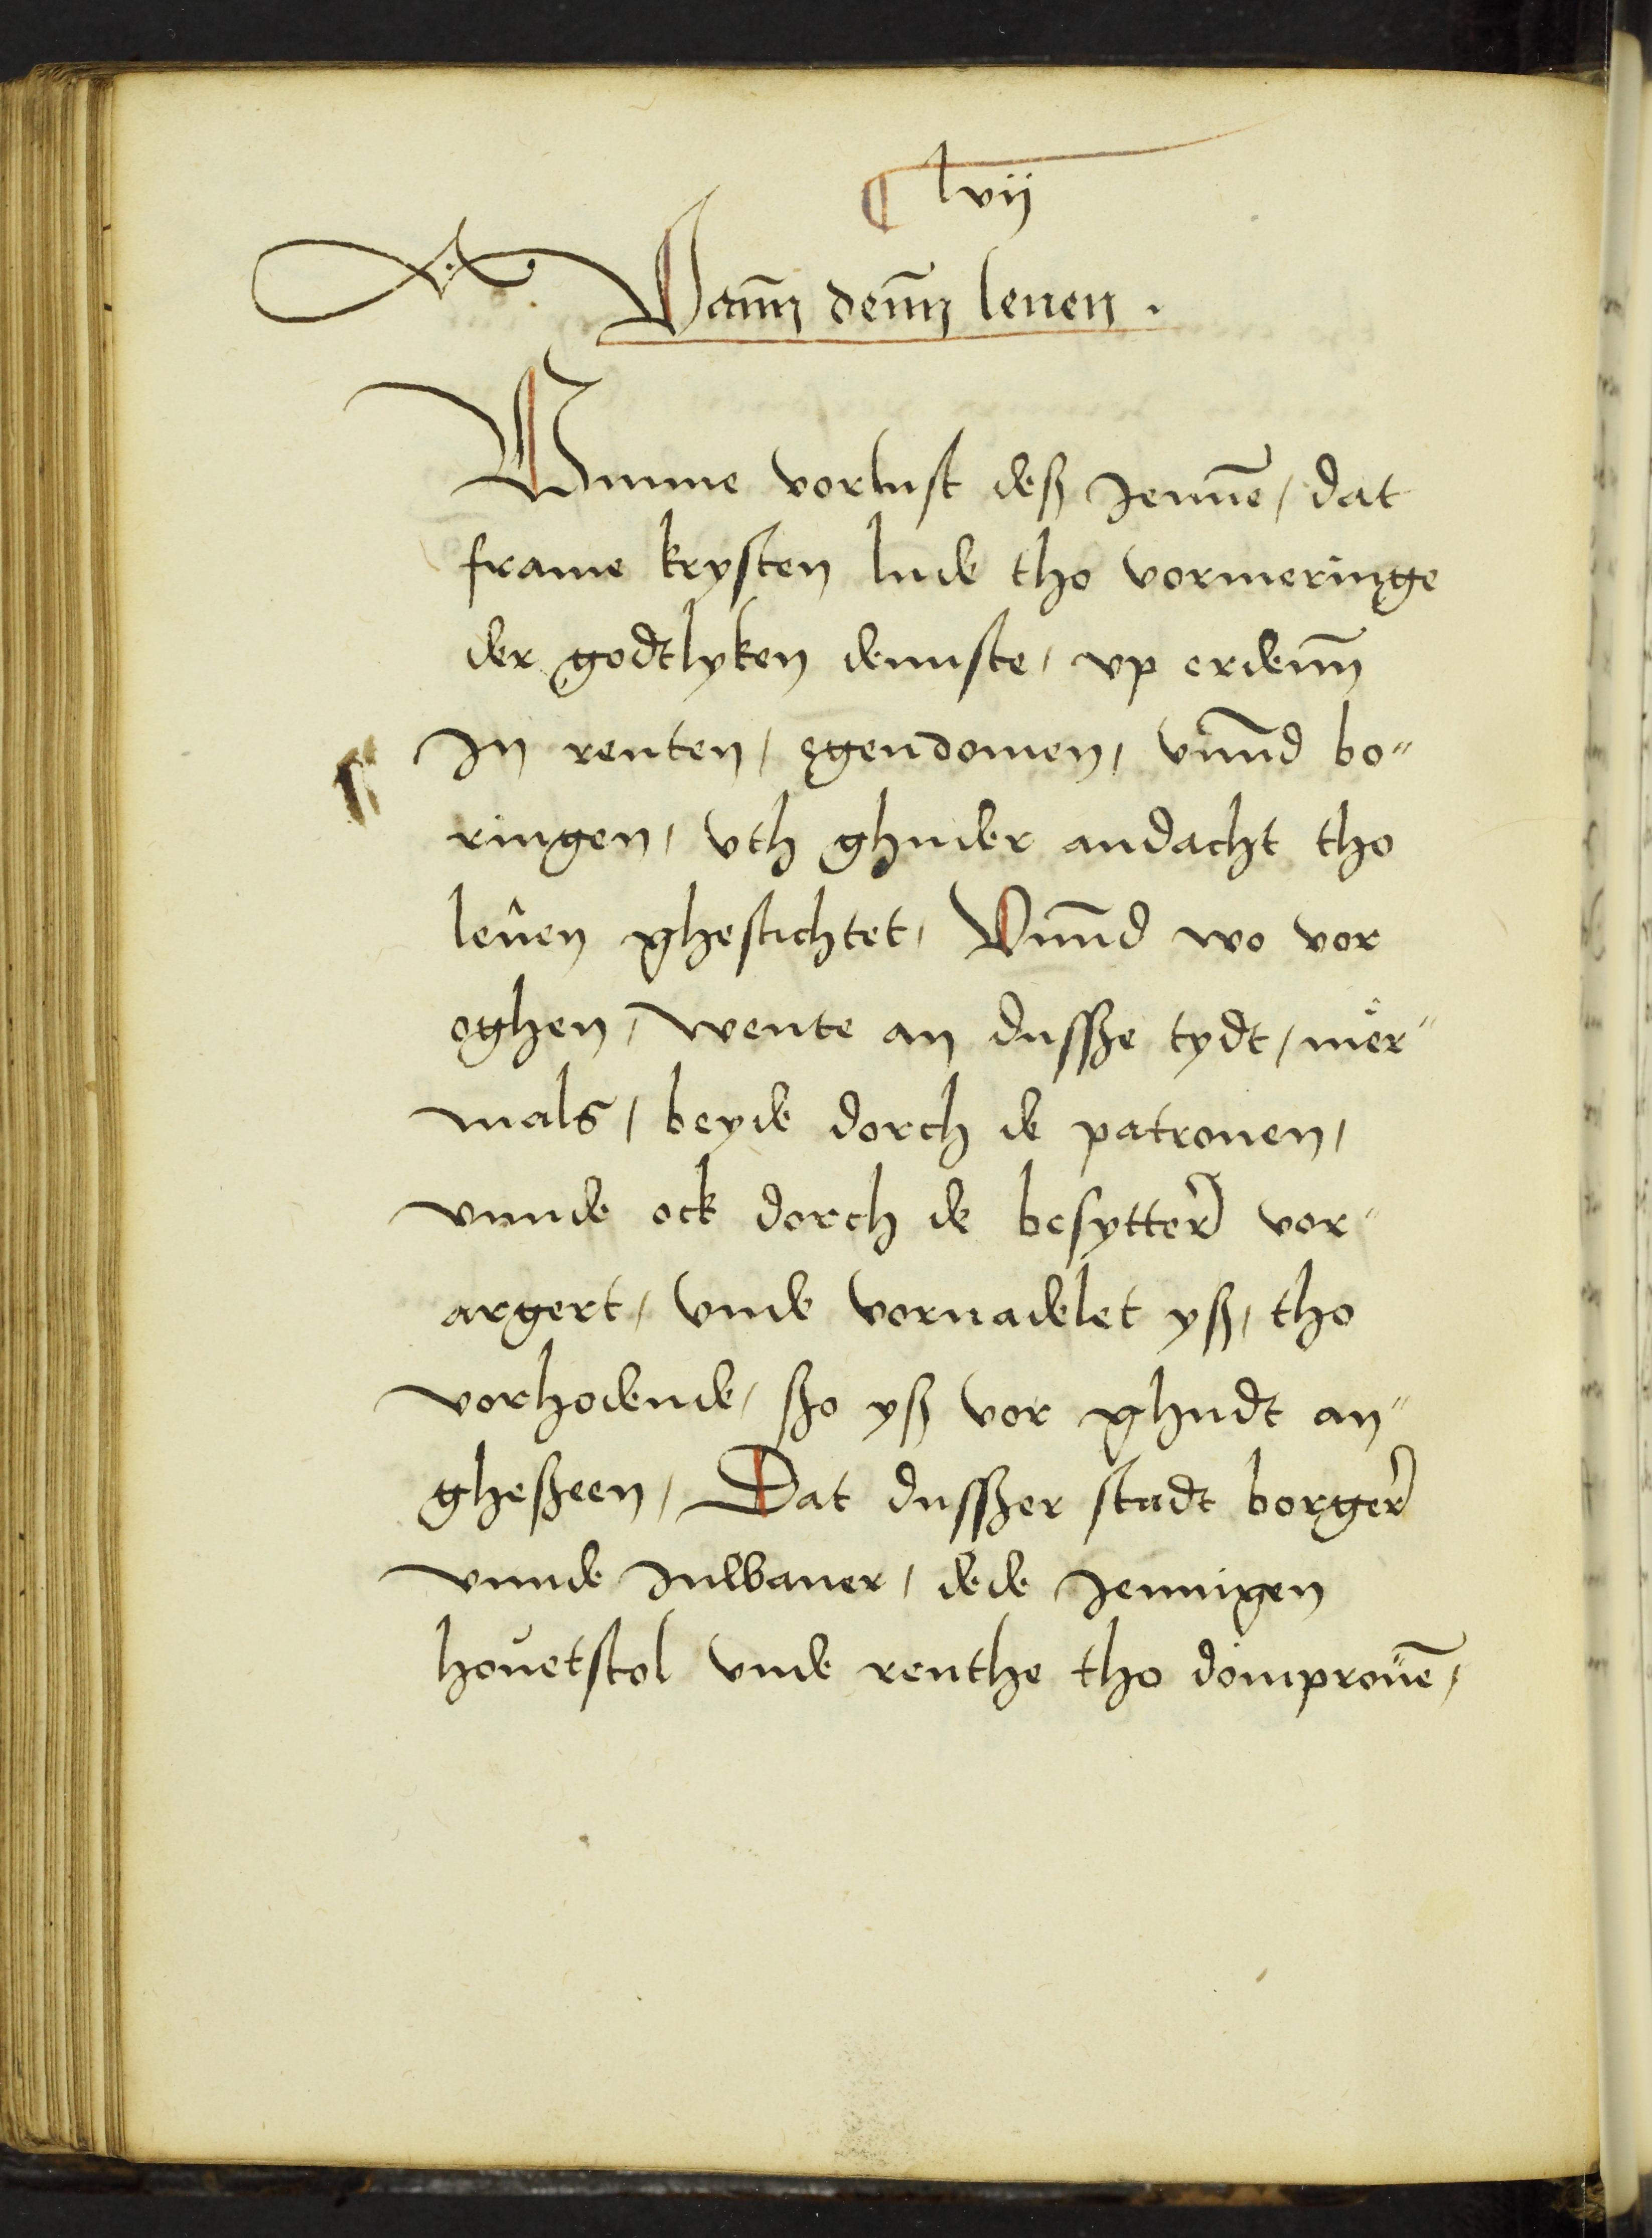 ¶ lvij
Vann̄ denn̄ leuen .
Vmme vorlust deß Jennē / dat
frame krysten lude tho vormeringe
der godtlyken dennste / vp erdenn̄
In renten / egendomen / vnnd̄ bo"
ringen / vth ghuder andacht tho
leûen ghestichtet / Vnnd̄ wo vor
oghen / wente an dussße tydt / mër"
mals / beyde dorch de patronen /
vnnde ock dorch de besytter̄ vor"
argert / vnde vornadelet yß / tho
vorhodende / sßo yß vor ghudt an"
gheßeen / Dat dussßer stadt borger̄
vnnde Inwaner / dede Jennigen
houetstol vnde renthe tho domprouē /